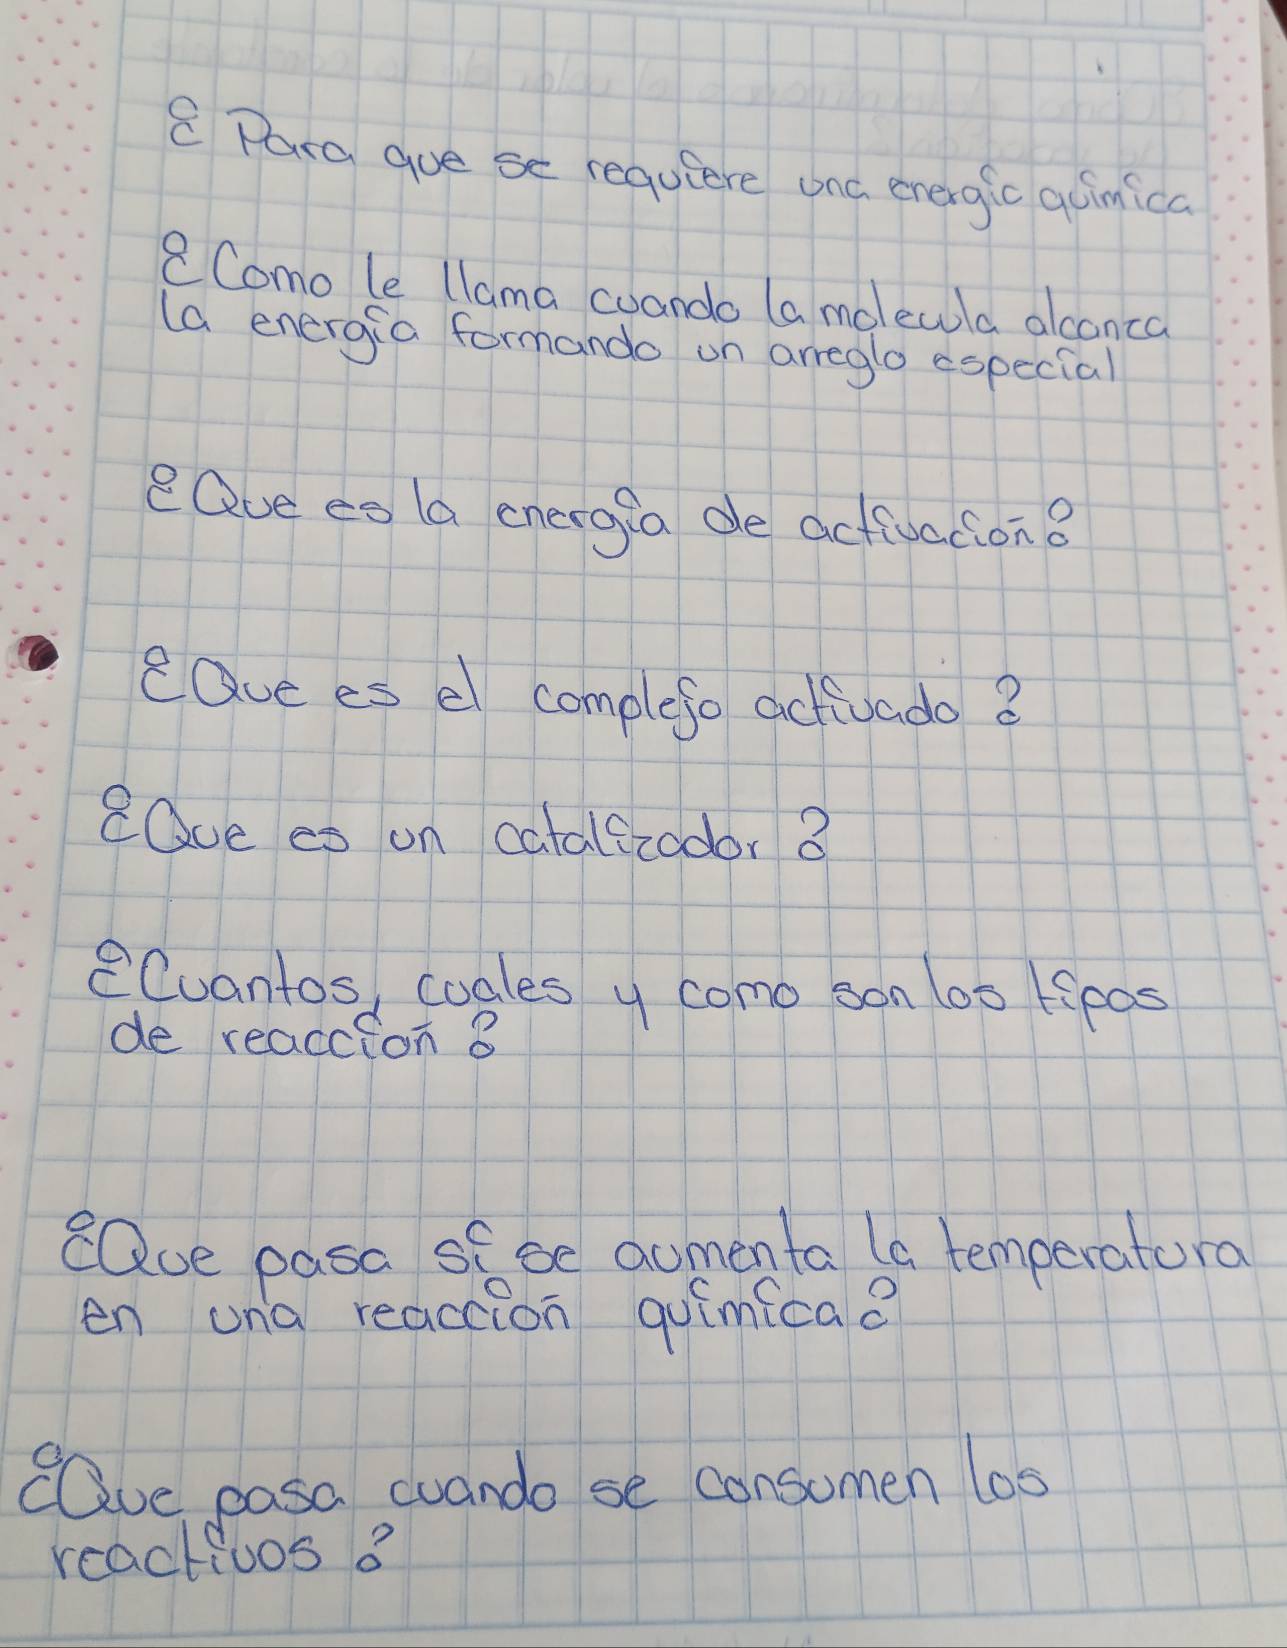 ¿Para que se requiere una energia química
¿Como le llama cuando la molecula alcanza
la energía formando un arreglo especial
¿Que es la energía de activación?
¿Que es el complejo activado?
¿Que es un catalizador?
¿Cuantos, cuales y como son los tipos
de reacción?
¿Que pasa si se aumenta la temperatura
en una reacción química?
¿Que pasa cuando se consumen los
reactivos?